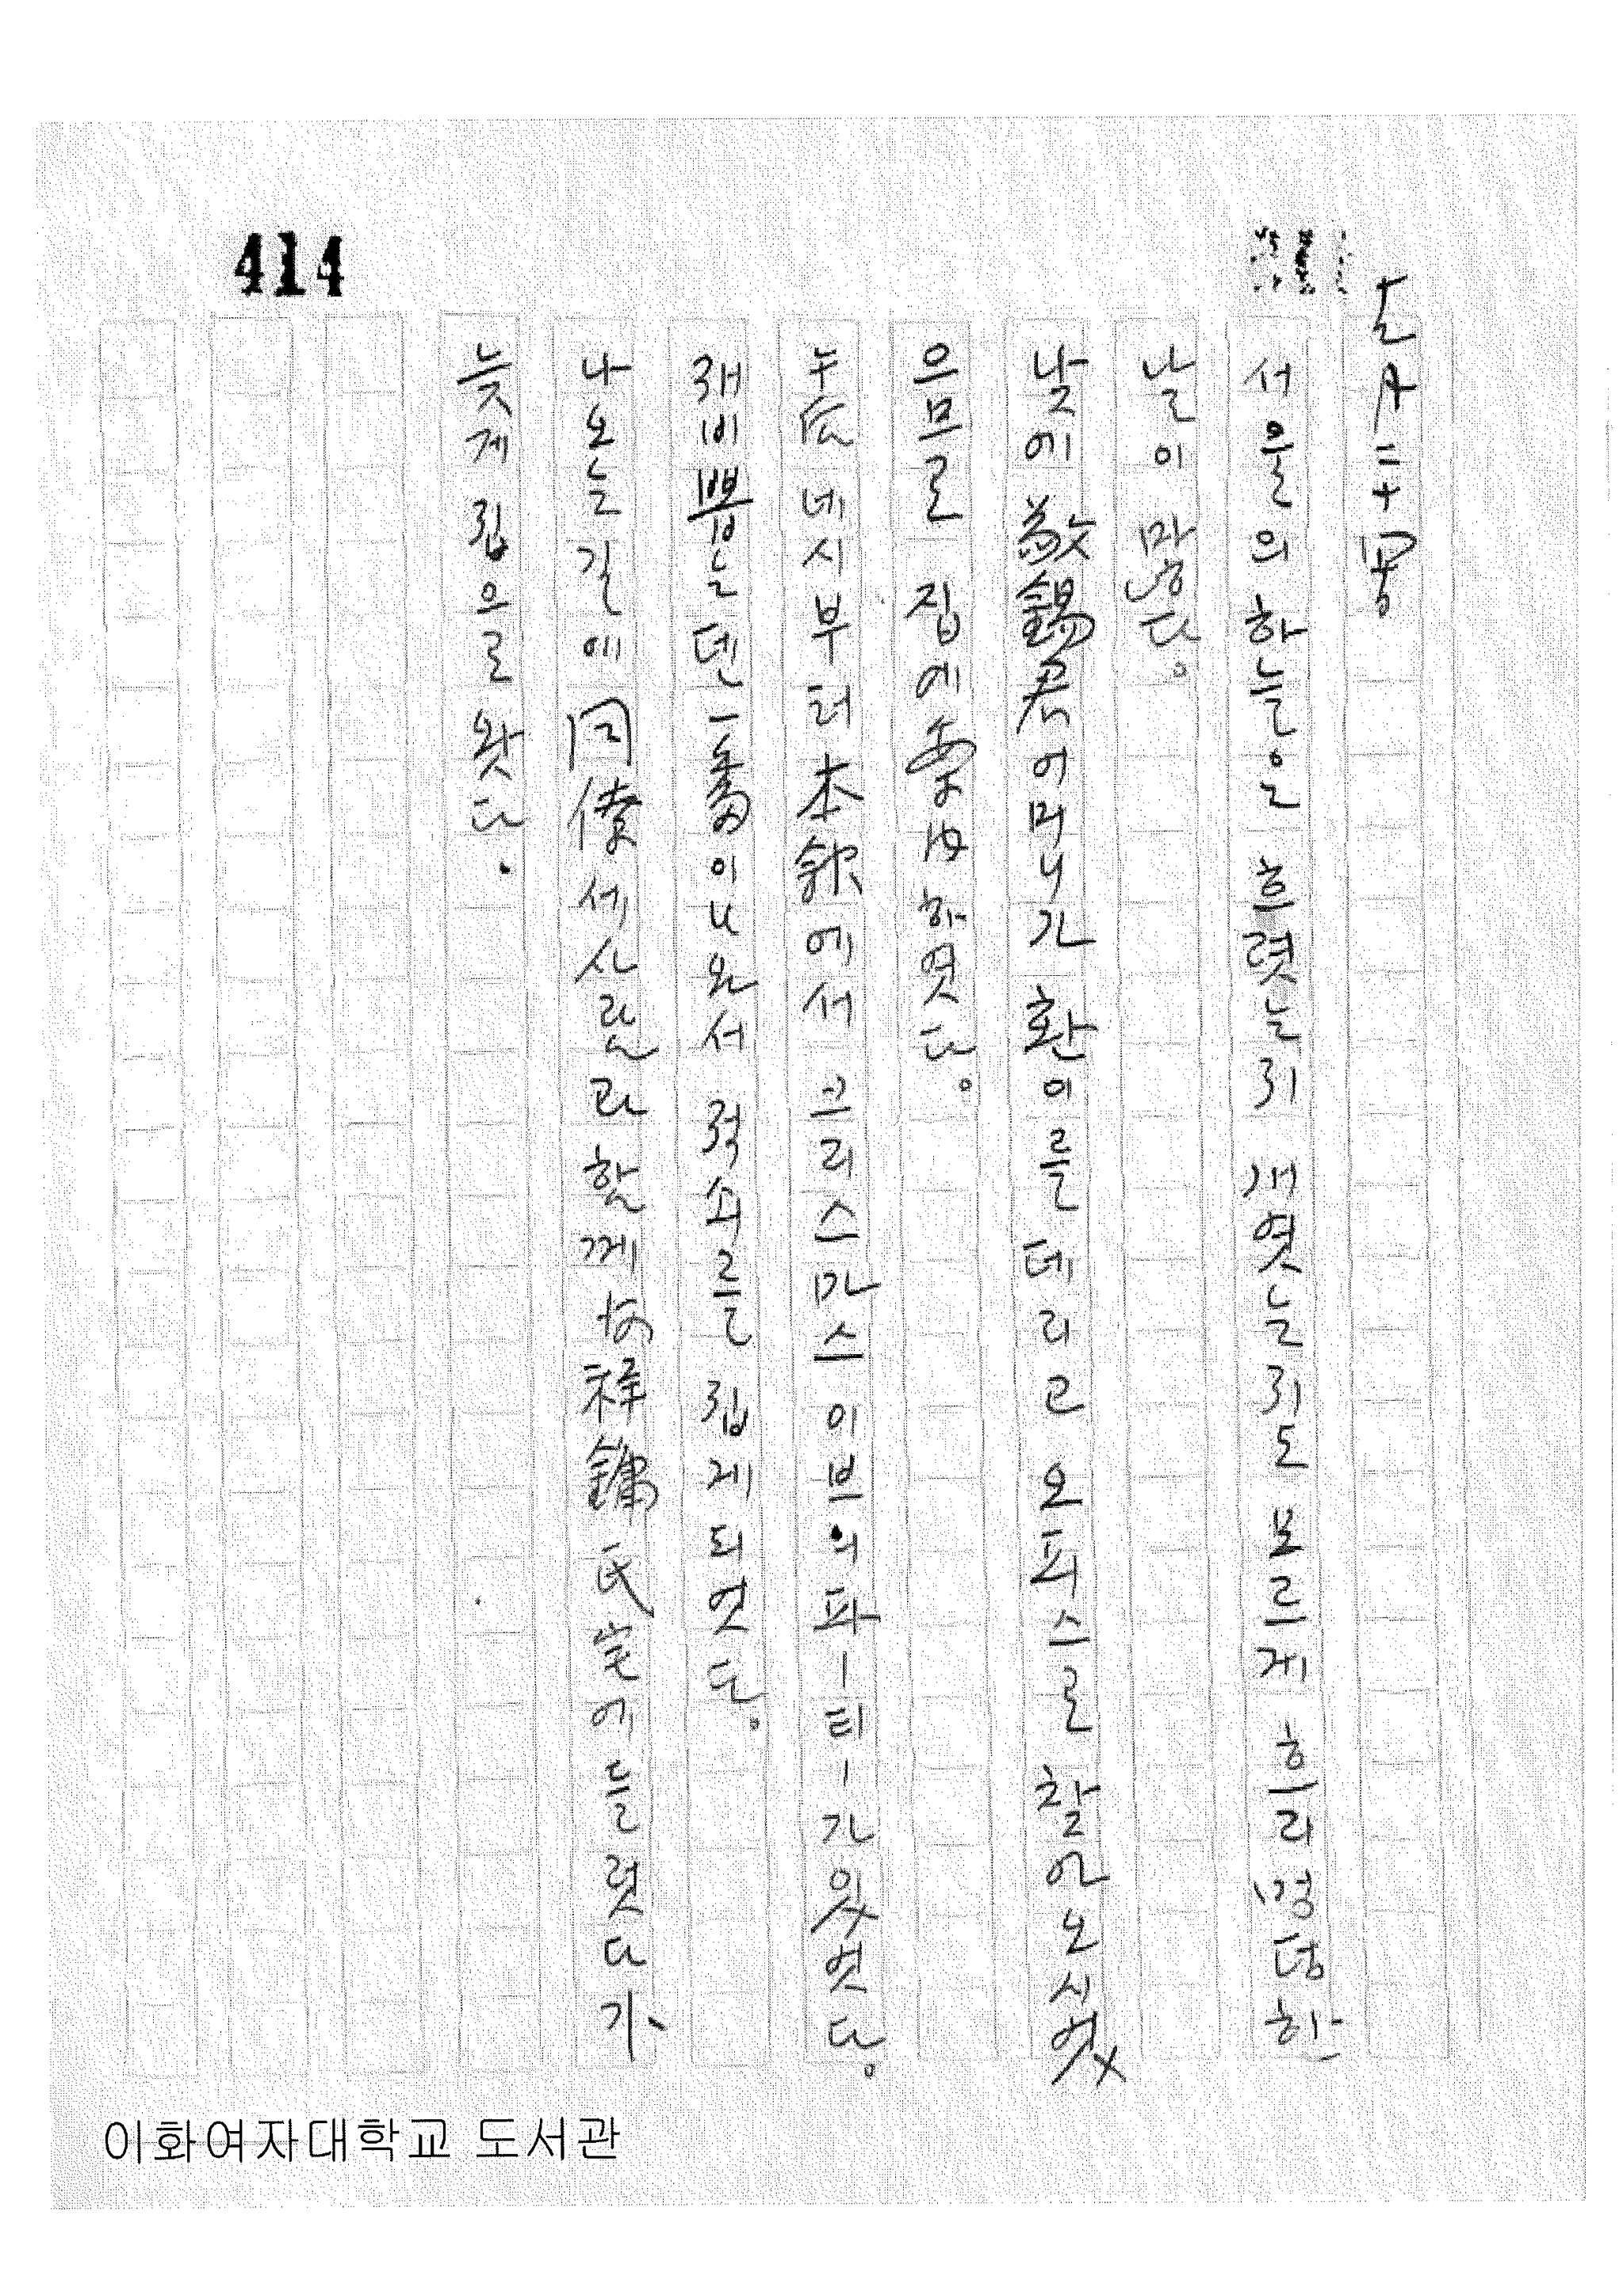 414
서울의 하늘은 흐렷는지 개엿는지도 모르게 흐리멍덩한
날이 많다.
낮에 敬錫君 어머니가 환이를 데리고 오피스로 찾아오시엇
으므로 집에 案内하엿다.
네시부터 本欽에서 크리스마스 이브의 파ー티ー가 잇엇다.
재비뽑는덴 一番이 나와서 적쇠를 집게 되엿다.
나오는길에 同僚 세사람과 함께 鏞氏宅에 들렷다가
늦게 집으로 왓다.
이화여자대학교 도서관